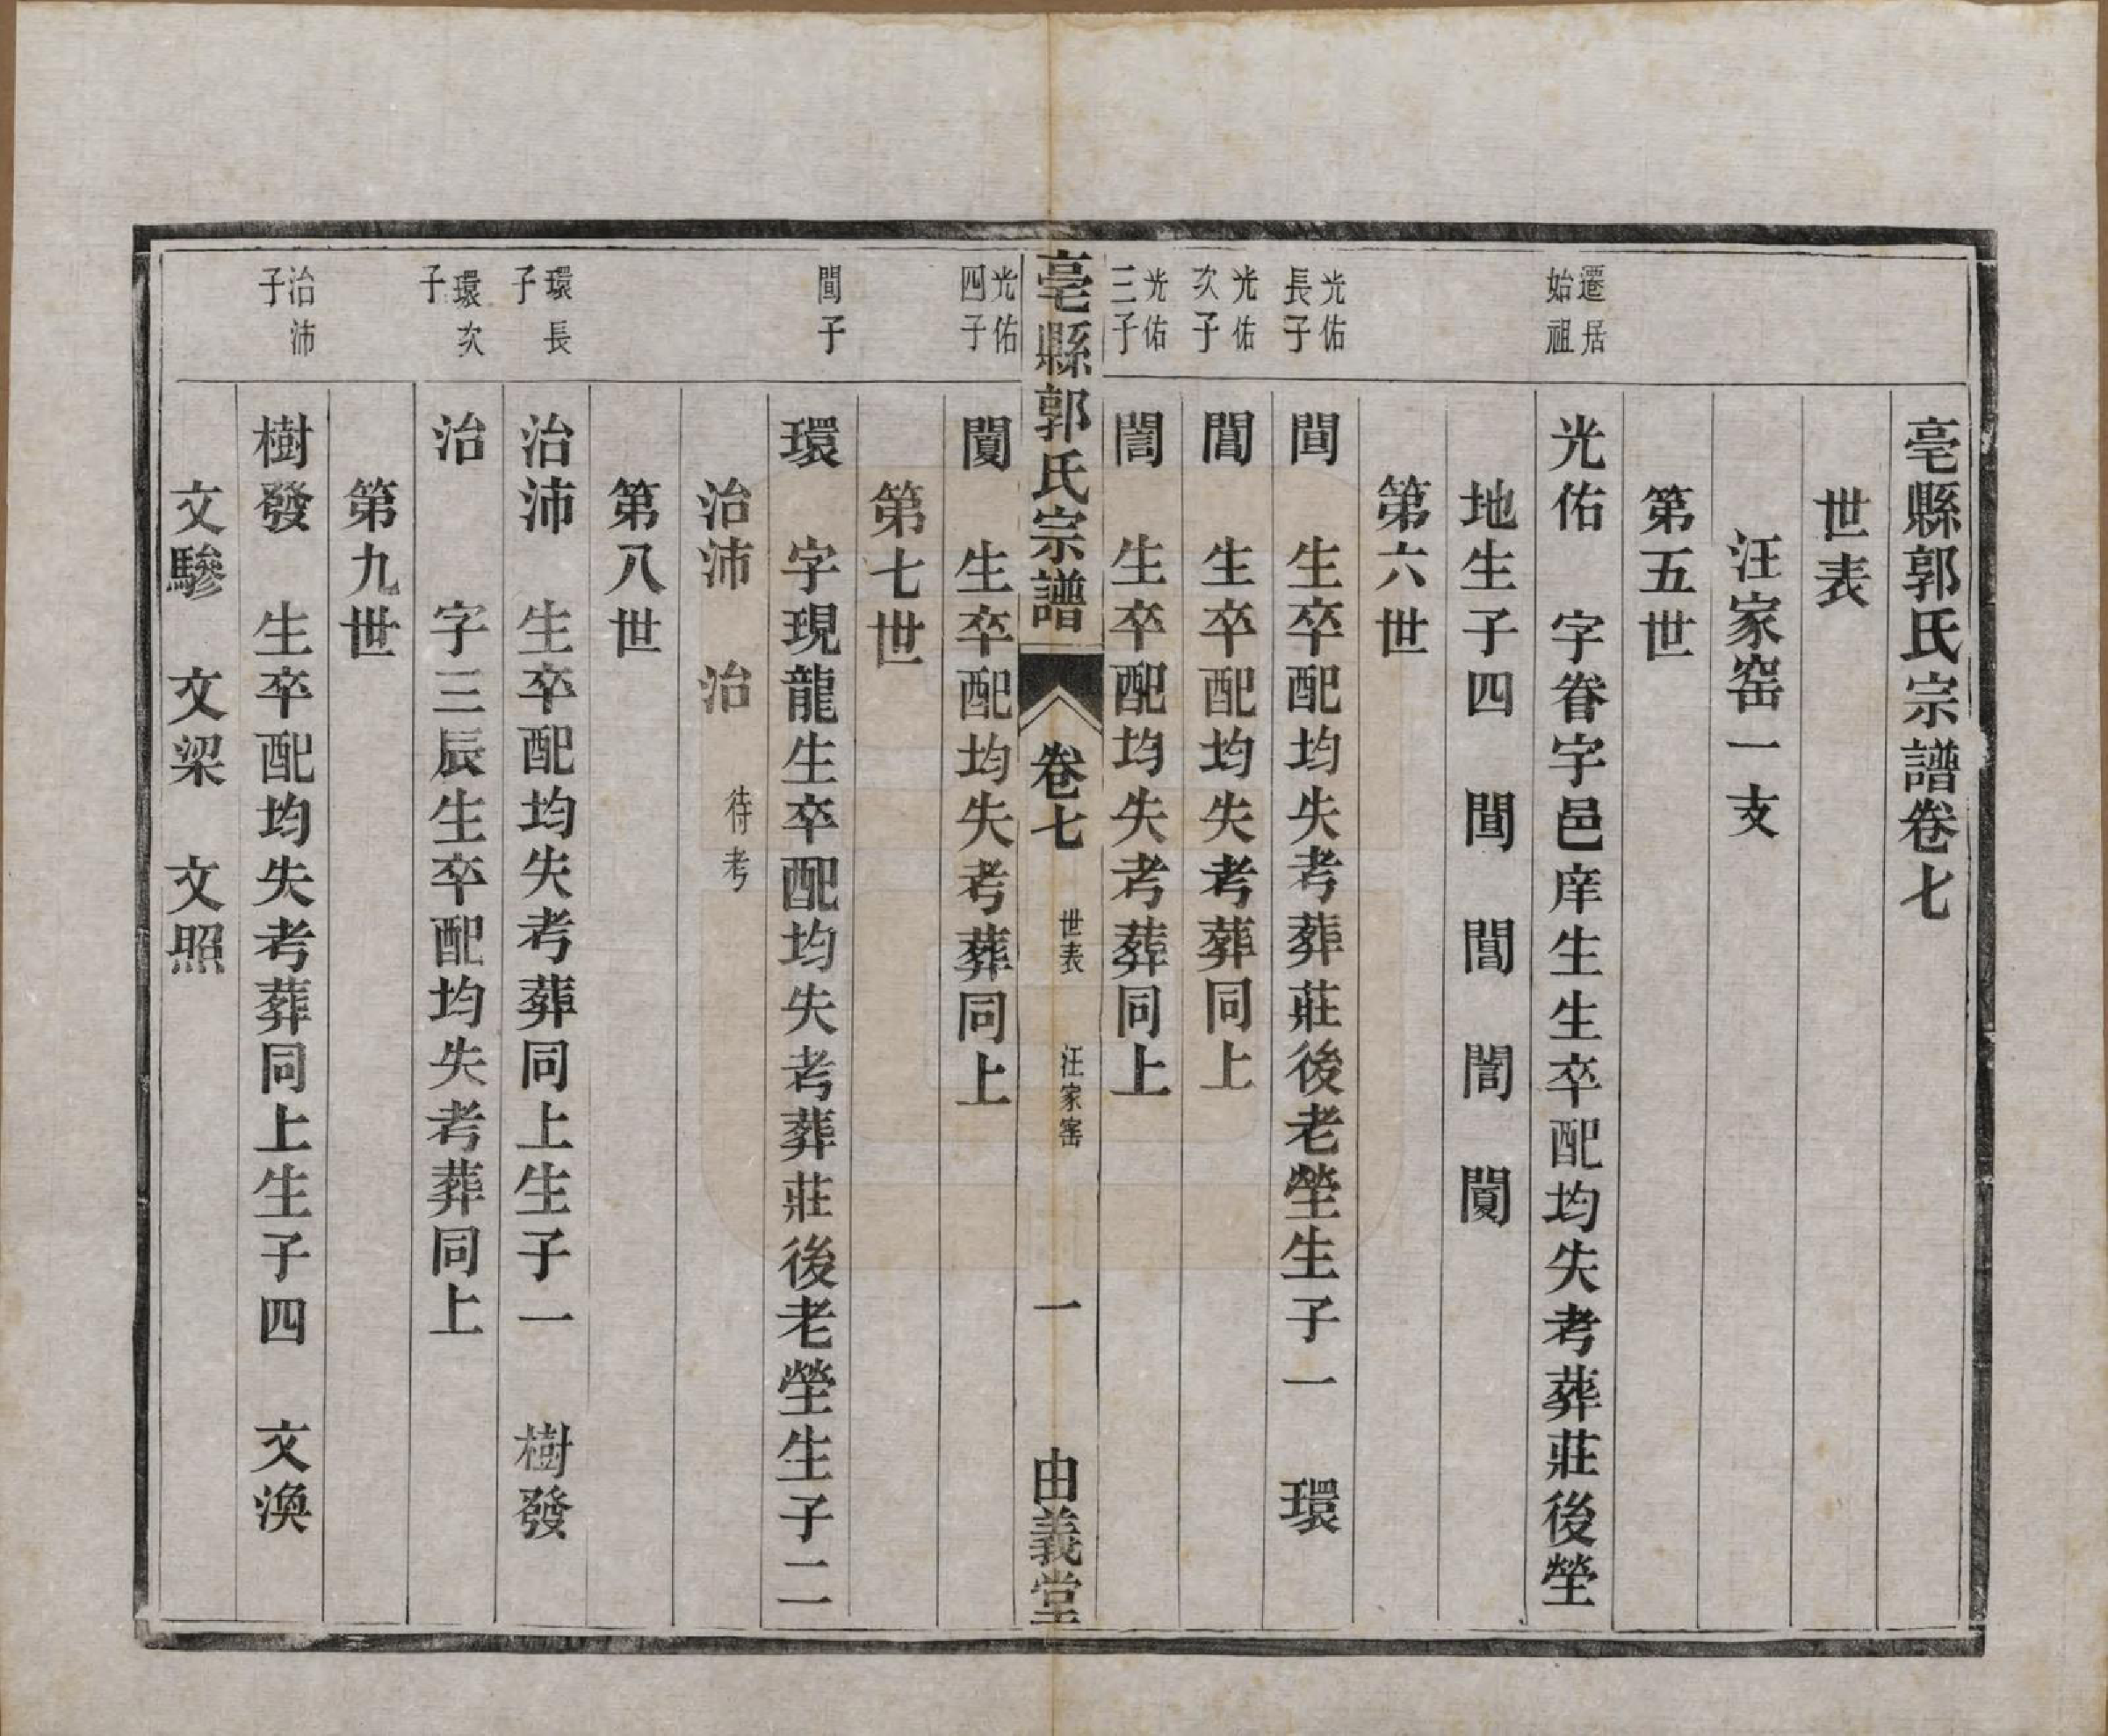 亳縣郭氏宗譜卷七
世表
汪家窑一支
第五世
遷居始祖
光佑 字眷字邑庠生生卒配均失考葬莊後塋
地生子四 間 閭 誾
第六世
光佑長子
間 生卒配均失考葬莊後老塋生子一 環
光佑次子
閭 生卒配均失考葬同上
光佑三子
誾 生卒配均失考葬同上
亳縣郭氏宗譜 卷七 世表 汪家窑 一 由義堂
光佑四子
生卒配均失考葬同上
第七世
間子
環 字現龍生卒配均失考葬莊後老塋生子二
治沛 治 待考
第八世
環長子
治沛 生卒配均失考葬同上生子一 樹發
環次子
治 字三辰生卒配均失考葬同上
第九世
治沛子
樹發 生卒配均失考葬同上生子四 文渙
文驂 文梁 文照